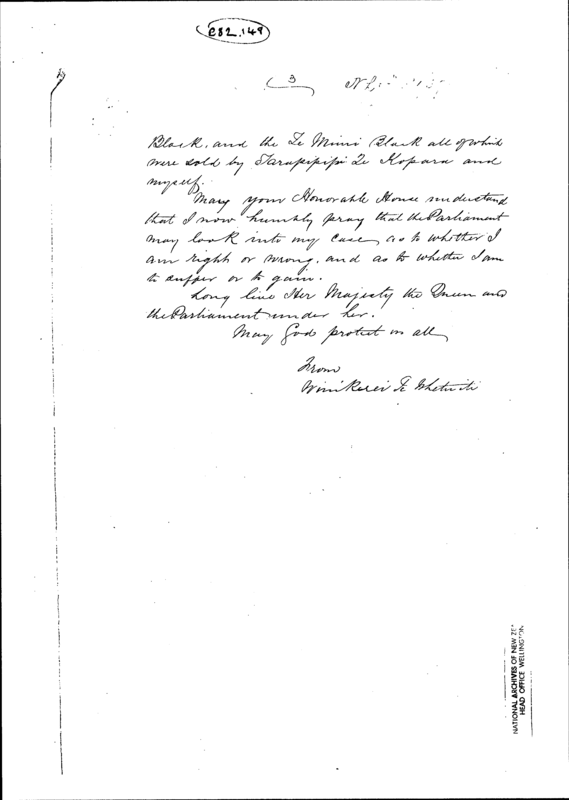 C82.149
3
Block, and the Te Mimi Block all of which
were sold by Tarapipipi Te Kopara and
myself.
May your Honorable House understand
that I now humbly pray that the Parliament
may look into my case, as to whether I
am right or wrong, and as to whether I am
to suffer or to gain.
Long live Her Majesty the Queen and
the Parliament under her.
May God protect us all,
From
Te
NATIONAL ARCHIVES OF NEW ZE
HEAD OFFICE WELLINGTON